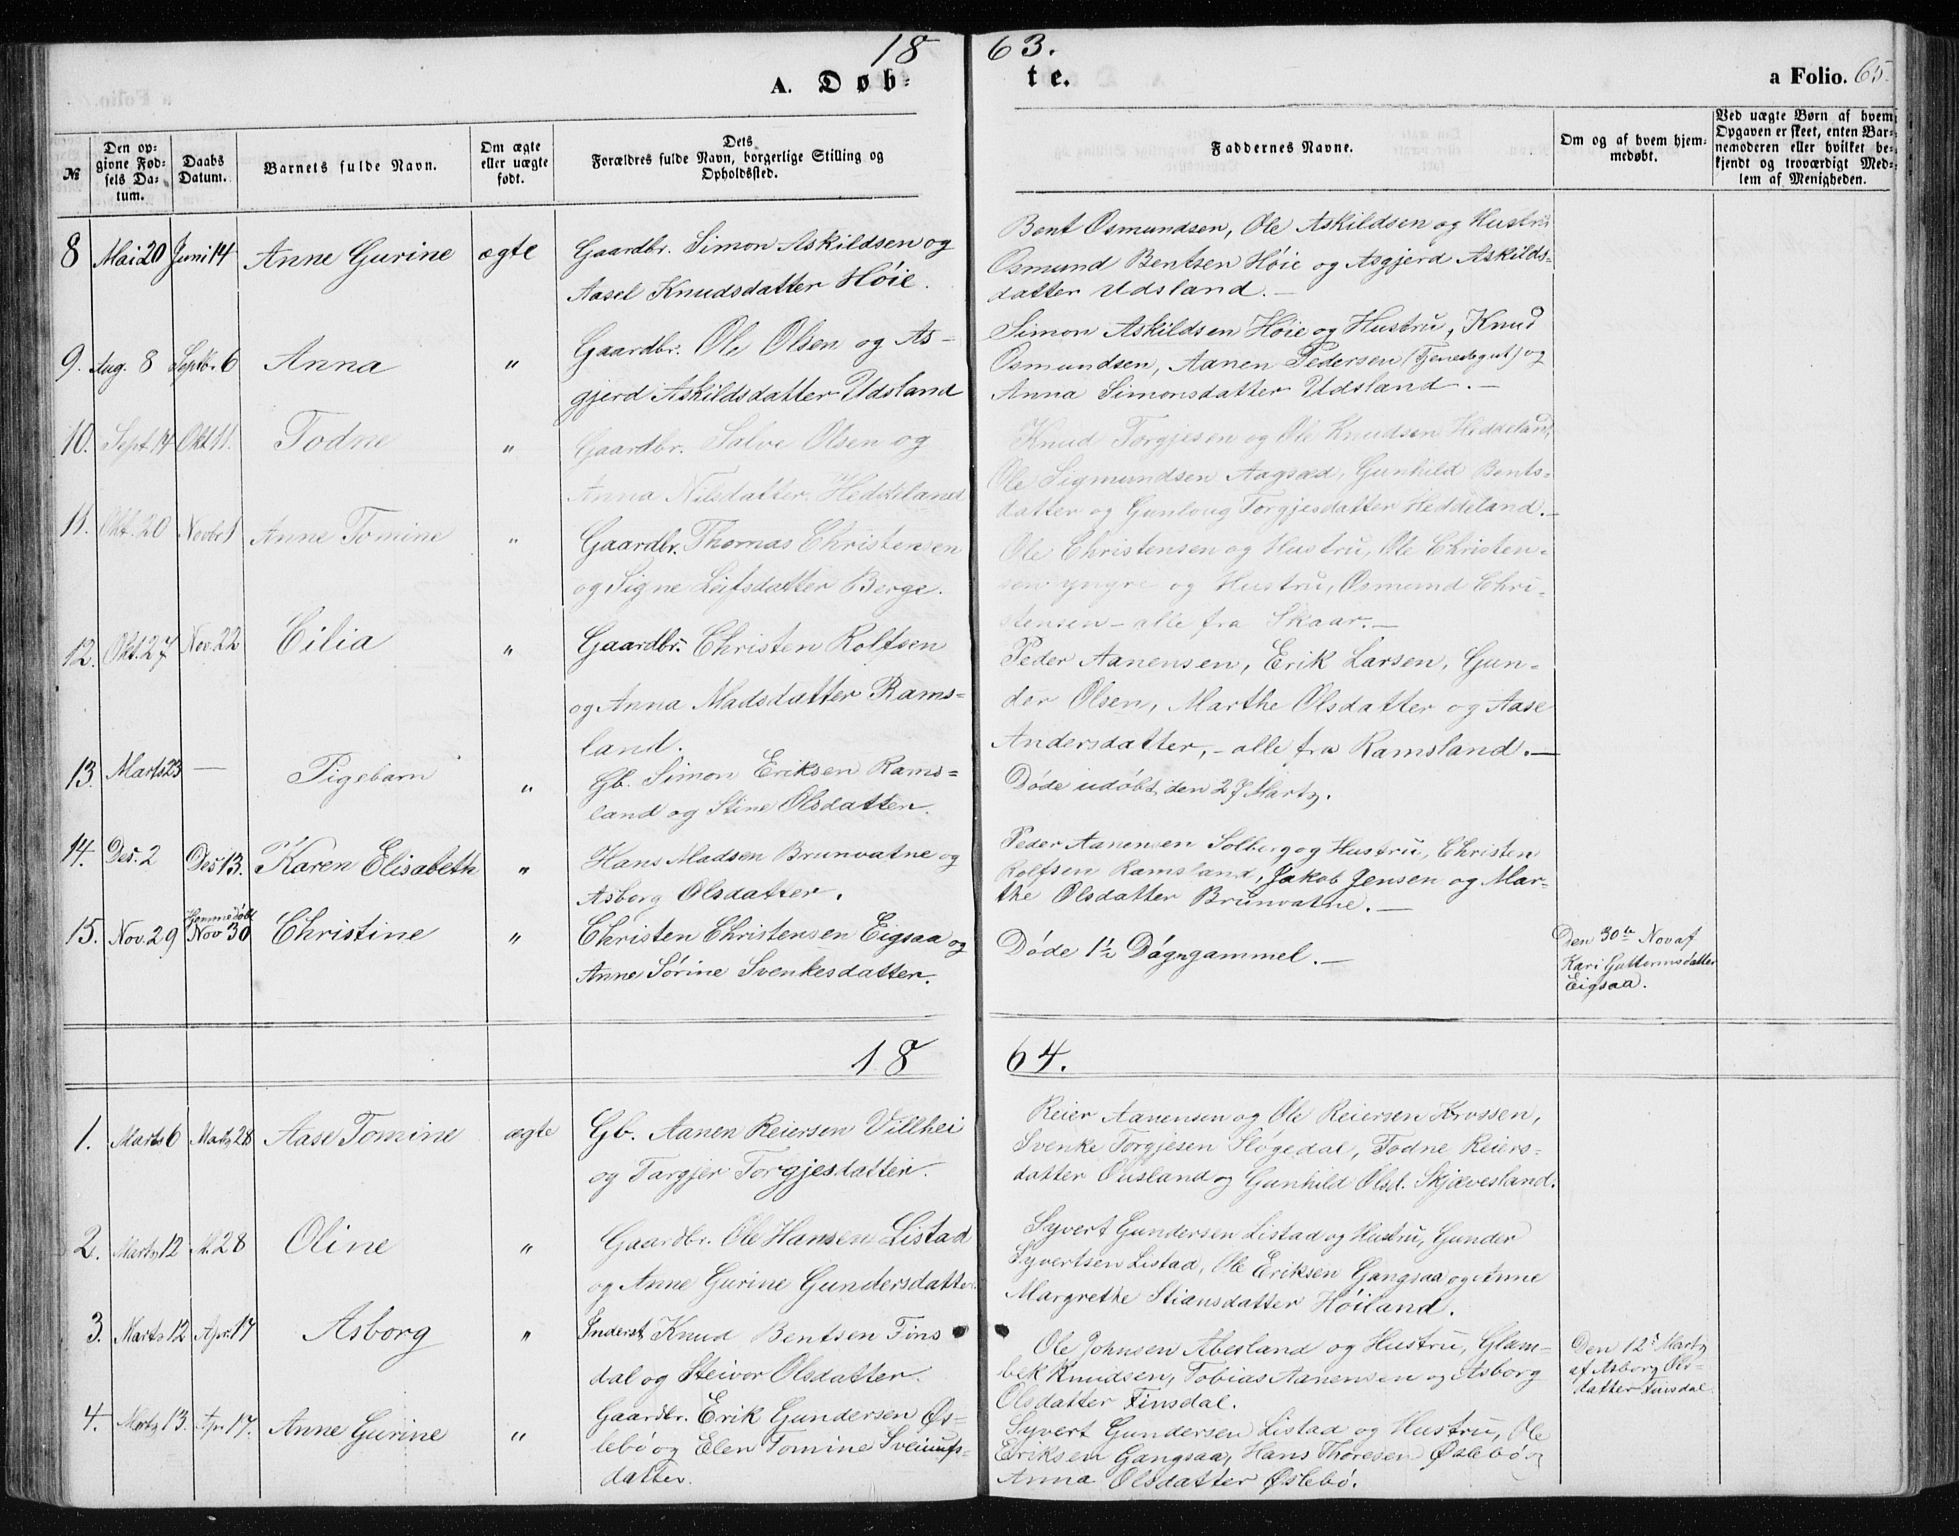 18 63.
A. Døb- te. a Folio. 65.
№
Den op-
givne Fød-
sels Da-
tum.
Daabs
Datum.
Barnets fulde Navn.
Om ægte
eller uægte
født.
Dets
Forældres fulde Navn, borgerlige Stilling og
Opholdssted.
Faddernes Navne.
Om og af hvem hjem-
medøbt.
Ved uægte Børn af hvem
Opgaven er skeet, enten Bar-
nemoderen eller hvilket be-
kjendt og troværdigt Med-
lem af Menigheden.
8 Mai 20 Juni 14 Anne Gurine ægte
Gaardbr. Simon Askildsen og
Aasel Knudsdatter Höie.
Bent Osmundsen, Ole Askildsen og Hustru
Osmund Bentsen Höie og Asgjerd Askilds-
datter Udsland. —
9. Aug. 8 Septbr. 6 Anna "
Gaardbr. Ole Olsen og As-
gjerd Askildsdatter Udsland
Simon Askildsen Höie og Hustru, Knud
Osmundsen, Aanen Pedersen (Tjenestegut) og
Anna Simonsdatter Udsland. —
10. Sept 14 Okt 11. Todne "
Gaardbr. Salve Olsen og
Anna Nilsdatter Heddeland
Knud Torgjesen og Ole Knudsen Heddeland,
Ole Sigmundsen Aagsæd, Gunhild Bents-
datter og Gunloug Torgjesdatter Heddeland. —
11. Okt. 20 Novbr 1 Anne Tomine "
Gaardbr. Thomas Christensen
og Signe Leifsdatter Berge.
Ole Christensen og Hustru, Ole Christen-
sen yngre og Hustru, Osmund Chri-
stensen – alle fra Skaar. —
12. Okt. 27 Nov. 22 Cilia "
Gaardbr. Christen Rolfsen
og Anna Madsdatter Rams-
land.
Peder Aanensen, Erik Larsen, Gun-
der Olsen, Marthe Olsdatter og Aase
Andersdatter, – alle fra Ramsland. —
13. Marts 23 — Pigebarn "
Gb. Simon Eriksen Rams-
land og Stine Olsdatter.
Döde udöbt den 27 Marts.
14. Des. 2 Des 13. Karen Elisabeth "
Hans Madsen Brunvatne og
Asborg Olsdatter.
Peder Aanensen Solberg og Hustru, Christen
Rolfsen Ramsland, Jakob Jensen og Mar-
the Olsdatter Brunvatne. —
15. Nov. 29 Hjemmedöbt Nov 30 Christine "
Christen Christensen Eigsaa og
Anne Sörine Svenkesdatter.
Döde 1½ Dögn gammel. —
Den 30te Nov af
Kari Guttormsdatter
Eigsaa.
18 64.
1. Marts 6 Marts 28 Aase Tomine ægte
Gb. Aanen Reiersen Villhei
og Targjer Torgjesdatter.
Reier Aanensen og Ole Reiersen Krossen,
Svenke Torgjesen Slögedal, Todne Reiers-
datter Ousland og Gunhild Olsd. Skjævesland.
2. Marts 12 M. 28 Oline "
Gaardbr. Ole Hansen Listad
og Anne Gurine Gundersdatter
Syvert Gundersen Listad og Hustru, Gunder
Syvertsen Listad, Ole Eriksen Gangsaa og Anne
Margrethe Stiansdatter Höiland.
3. Marts 12 Apr. 17 Asborg "
Inderst Knud Bentsen Fins
dal og Steivor Olsdatter.
Ole Johnsen Abesland og Hustru, Glam-
bek Knudsen, Tobias Aanensen og Asborg
Olsdatter Finsdal.
Den 12. Marts
af Asborg Ols-
datter Finsdal.
4. Marts 13. Apr. 17. Anne Gurine "
Gaardbr. Erik Gundersen Øs-
lebö og Elen Tomine Sveinungs-
datter.
Syvert Gundersen Listad og Hustru, Ole
Eriksen Gangsaa, Hans Thoresen Øslebö og
Anna Olsdatter Øslebö.